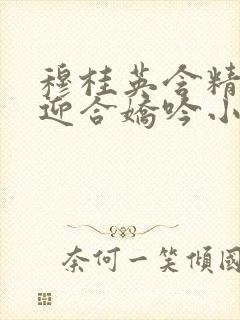 穆桂英含精
迎合嬌吟小
奈何一笑傾國